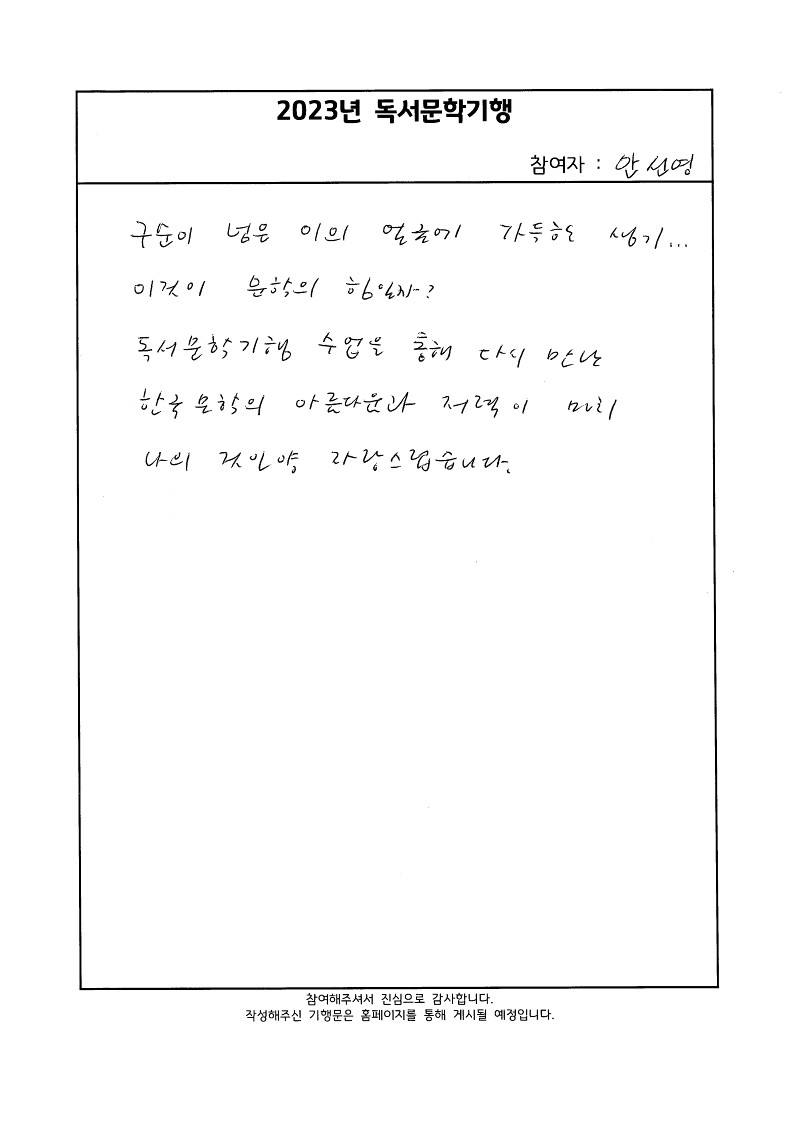 2023년 독서문학기행
참여자 : 안선영
구순이 넘은 이의 얼굴에 가득한 생기...
이것이 문학의 힘일까?
독서문학기행 수업을 통해 다시 만난
한국문학의 아름다운과 저력이 마치
나의 것인양 자랑스럽습니다.
참여해주셔서 진심으로 감사합니다.
작성해주신 기행문은 홈페이지를 통해 게시될 예정입니다.